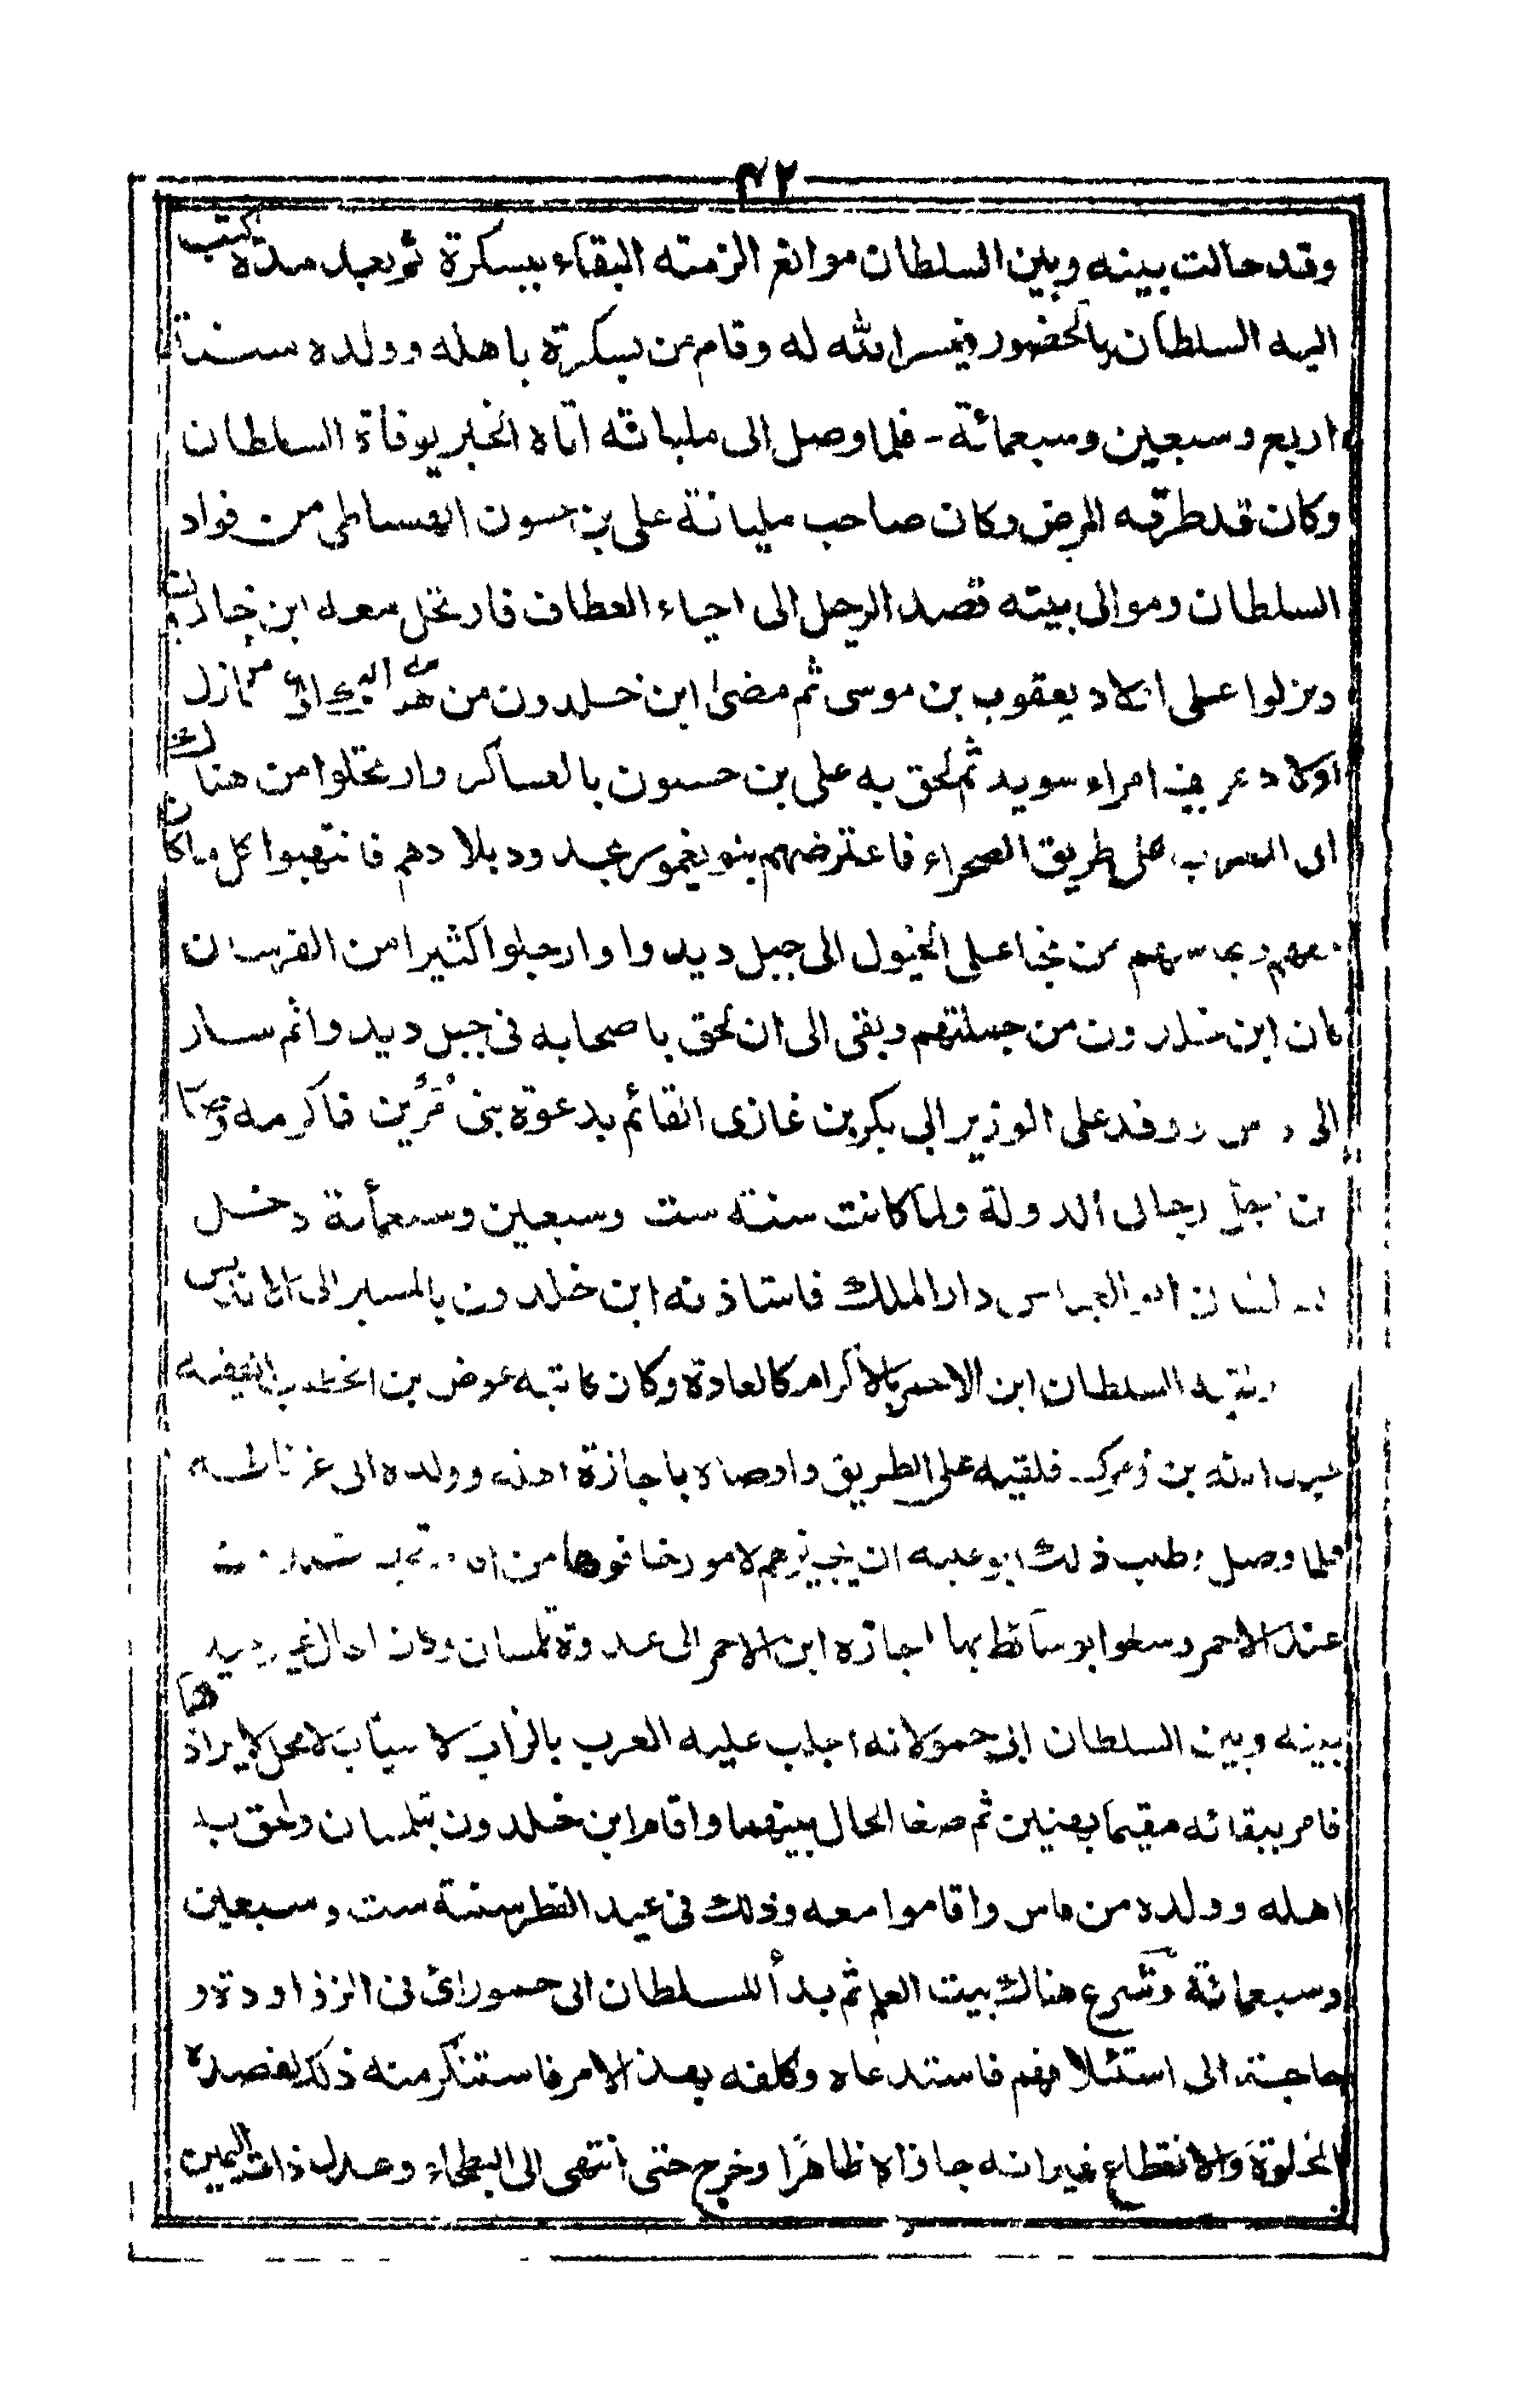 ٤٢
وقد حالت بينه وبين السلطان موانع الزمته البقاء ببسكرة ثم بعد مدة كتب
اليه السلطان بالحضور فيسر الله له وقام من بسكرة باهله وولده سنة
اربع وسبعين وسبعمائة - فلما وصل الى مليانة اتاه الخبر بوفاة السلطان
وكان قد طرقه المرض وكان صاحب مليانة على بن حسون من قواد
السلطان وموالى بيته قصد الرحيل الى احياء العطاف فارتحل معه ابن خلدون
ونزلوا على اولاد يعقوب بن موسى ثم مضى ابن خلدون من هذا الى منازل
اولاد عريف امراء سويد ثم لحق به على بن حسون بالعساكر وارتحلوا من هناك
الى المغرب على طريق الصحراء فاعترضهم بنو يغمور بحدود بلادهم فانتهبوا كل ما كان
معهم ونجا منهم من نجا على الخيول الى جبل ديدوا وارجلوا كثيرا من الفرسان
كان ابن خلدون من جملتهم وبقى الى ان لحق باصحابه فى جبل ديدوا ثم سار
الى ووفد على الوزير ابى بكر بن غازى القائم بدعوة بنى مرين فاكرمه وصار
من رجال الدولة ولما كانت سنة ست وسبعين وسبعمأئة دخل
السلطان ابو العباس دار الملك فاستاذنه ابن خلدون بالمسير الى الاندلس
السلطان ابن الاحمر بالاكرام كالعادة وكان كاتبه عوض بن الخطيب الفقيه
عبد الله بن زمرك فلقيه على الطريق واوصاه باجازة اهله وولده الى غرناطه
فلما وصل وطلب ذلك ابوعليه ان يجيزهم لامور خافوها من
عند الاحمر وسعوا بوسائط بها اجازه ابن الاحمر الى عدوة تلمسان وكان الحال غير
بينه وبين السلطان ابى حمو لانه اجلب عليه العرب بالزاب لاسباب لا محل لايرادها
فامر ببقائه مقيما بهنين ثم صفا الحال بينهما واقام ابن خلدون بتلمسان ولحق به
اهله وولده من فاس واقاموا معه وذلك فى عيد الفطر سنة ست وسبعين
وسبعمائة وشرع هناك ببيت العلم ثم بدأ للسلطان ابى حمو رائ فى الزواودة و
حاجته الى استئلافهم فاستدعاه وكلفه بهذا الامر فاستنكر منه ذلك لقصده
الخلوة والانقطاع غير انه جازاه ظاهرًا وخرج حتى انتهى الى البطحاء وعدل ذات اليمين